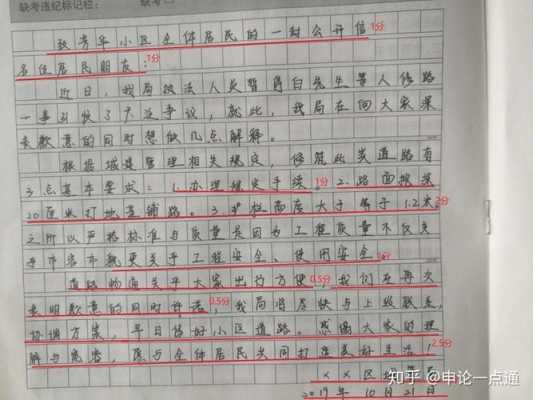 缺考违纪标记栏: 缺考
致芳华小区全体居民的一封公开信 1分
各位居民朋友: 1分
近日,我局执法人员暂扣白先生等人修路
一事引发了广泛争议,就此,我局在向大家深
表歉意的同时想做几点解释。
根据城建管理相关规定,修筑此类道路有
3点基本要求:1.办理相关手续。1分 2.路面挖深
20厘米打地基铺路。3.护栏高度大于等于1.2米。3分
之所以严格标准与质量是因为工程质量不仅关
乎市容市貌更关乎工程安全、使用安全。
道路畅通关乎大家出行方便,0.5分 我们在再次
表明歉意的同时许诺,0.5分 我局将尽快与上级联系,
协调方案,早日修好小区道路。感谢大家的理
解与宽容,愿与全体居民共同打造美好生活!2.5分
××区
2019年10月21日
知乎 @申论一点通